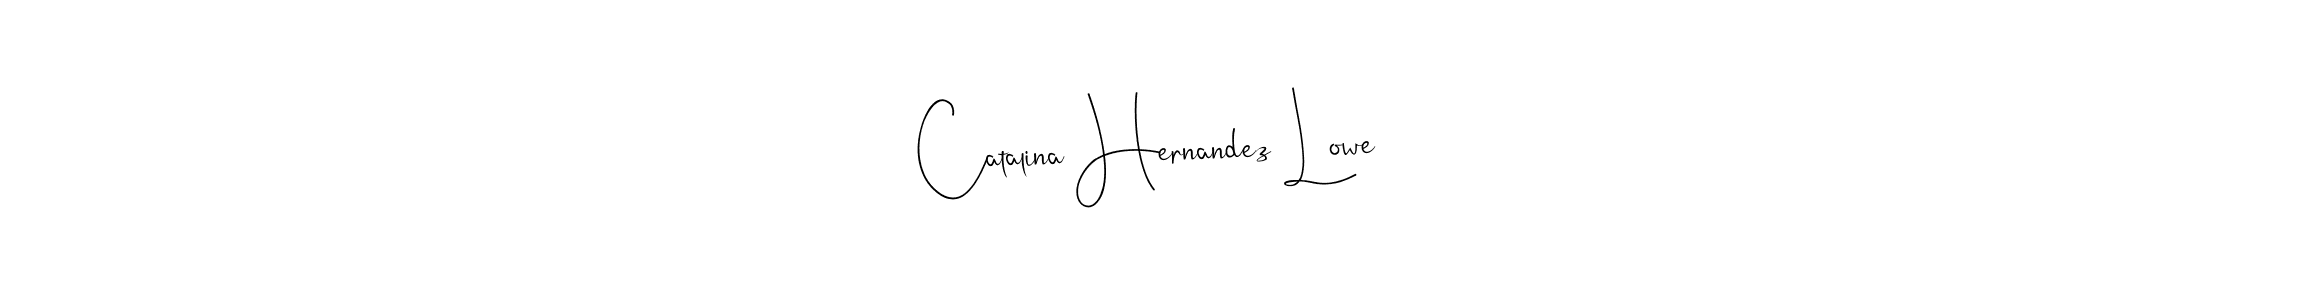 Catalina Hernandez Lowe